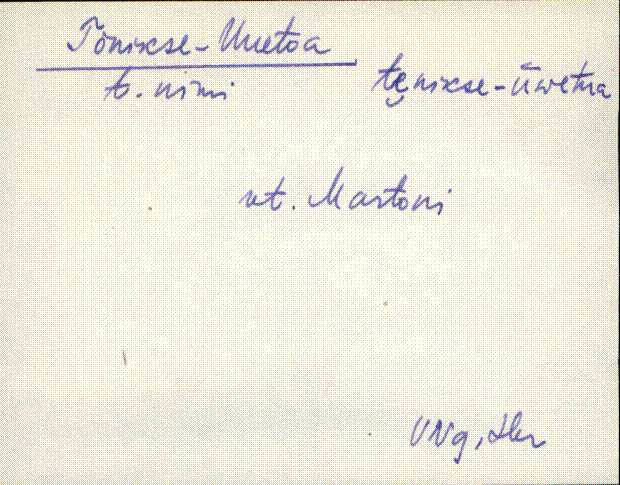 Tõnikse-Uuetoa
t. nimi
tęnikse-ūwetua
vt. Martoni
VNg,